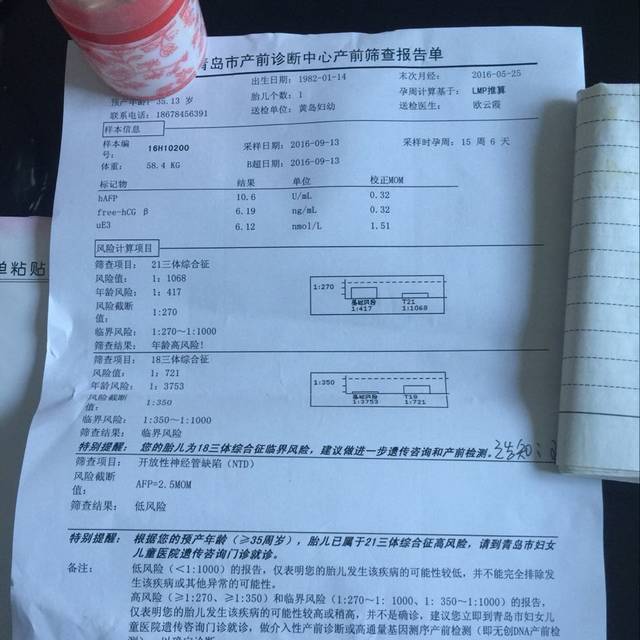 青岛市产前诊断中心产前筛查报告单
出生日期：1982-01-14 末次月经：2016-05-25
预产年龄：35.13 岁 胎儿个数：1 孕周计算基于：LMP推算
联系电话：18678456391 送检单位：黄岛妇幼 送检医生：欧云霞
样本信息
样本编号：16H10200 采样日期：2016-09-13 采样时孕周：15 周 6 天
体重：58.4 KG B超日期：2016-09-13
标记物 结果 单位 校正MOM
hAFP 10.6 U/mL 0.32
free-hCG β 6.19 ng/mL 0.32
uE3 6.12 nmol/L 1.51
风险计算项目
筛查项目：21三体综合征
风险值：1：1068
年龄风险：1：417
风险截断值：1:270
临界风险：1:270～1:1000
筛查结果：年龄高风险！
1:270
基础风险 T21
1:417 1:1068
筛查项目：18三体综合征
风险值：1：721
年龄风险：1：3753
风险截断值：1:350
临界风险：1:350～1:1000
筛查结果：临界风险
1:350
基础风险 T18
1:3753 1:721
特别提醒：您的胎儿为18三体综合征临界风险，建议做进一步遗传咨询和产前检测。
筛查项目：开放性神经管缺陷（NTD）
风险截断值：AFP=2.5MOM
筛查结果：低风险
特别提醒：根据您的预产年龄（≥35周岁），胎儿已属于21三体综合征高风险，请到青岛市妇女
儿童医院遗传咨询门诊就诊。
备注：低风险（<1:1000）的报告，仅表明您的胎儿发生该疾病的可能性较低，并不能完全排除发
生该疾病或其他异常的可能性。
高风险（≥1:270、≥1:350）和临界风险（1:270~1: 1000、1: 350~1:1000）的报告，
仅表明您的胎儿发生该疾病的可能性较高或稍高，并不是确诊，建议您立即到青岛市妇女儿
童医院遗传咨询门诊就诊，做介入性产前诊断或高通量基因测序产前检测（即无创DNA产前检
单粘贴